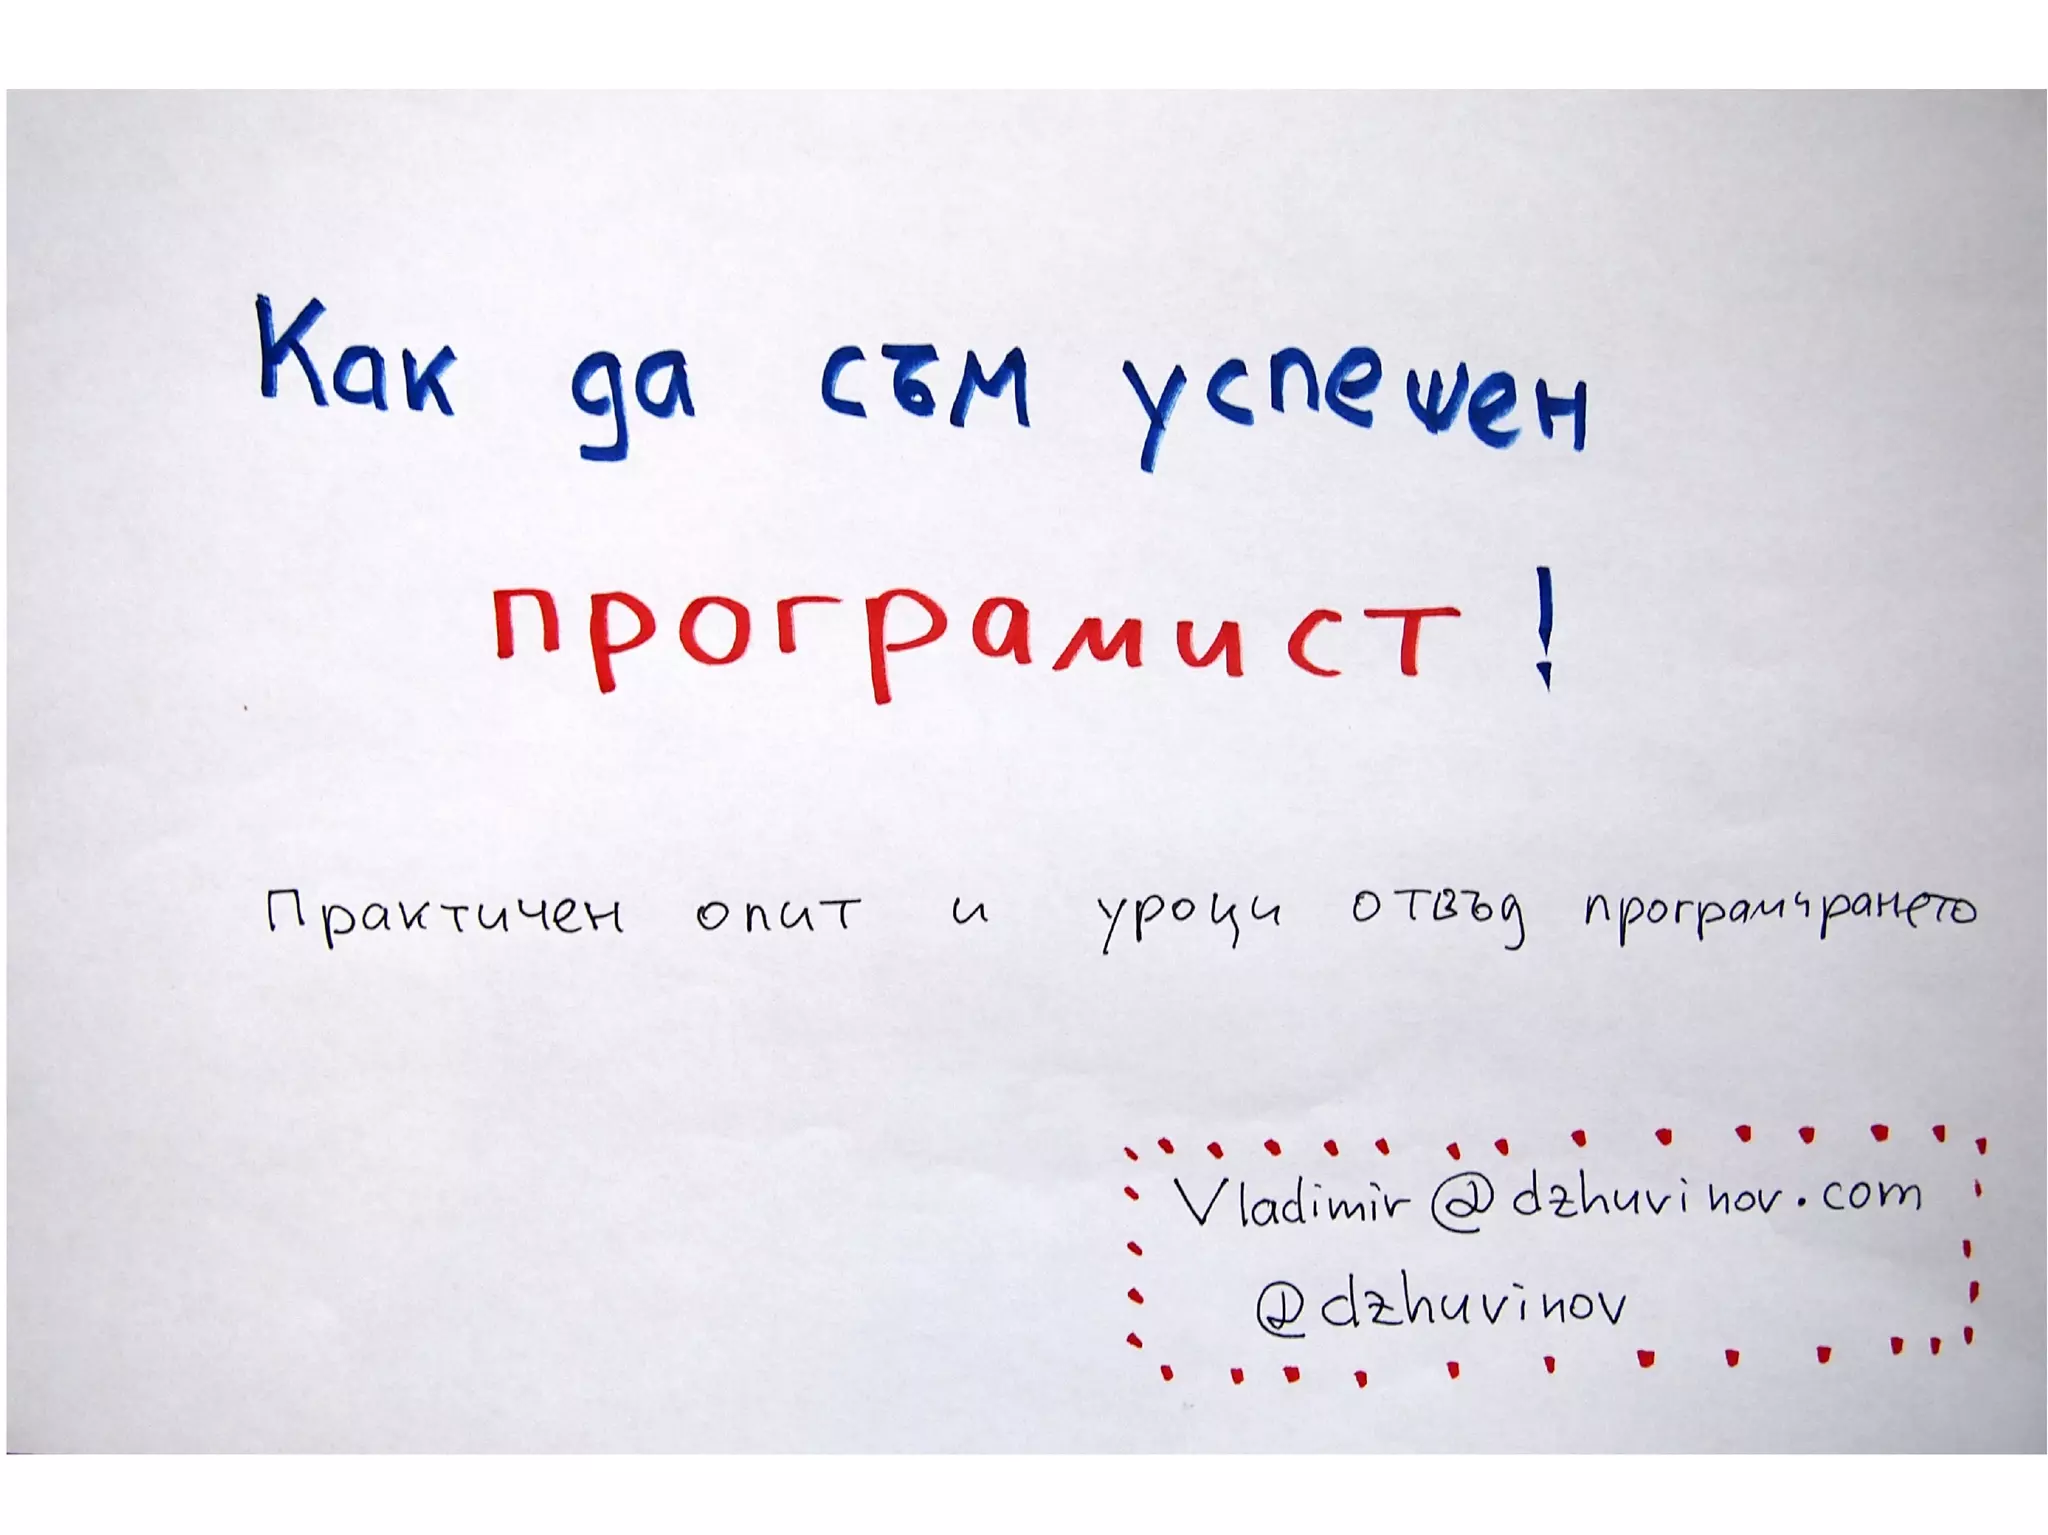 Как да съм успешен
програмист!
Практичен опит и уроци отвъд програмирането
Vladimir@dzhuvinov.com
@dzhuvinov